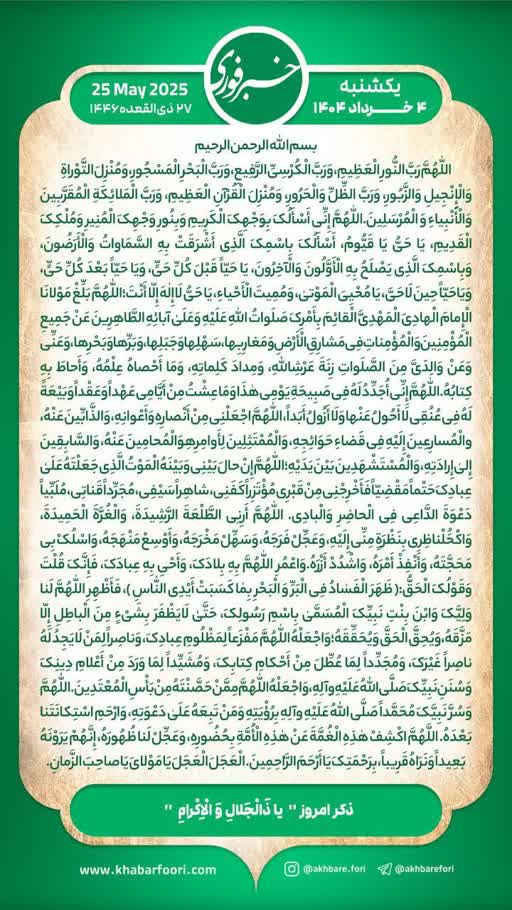 خبرفوری
یکشنبه
۴ خـــرداد ۱۴۰۴
25 May 2025
۲۷ ذی‌القعده ۱۴۴۶
بسم الله الرحمن الرحیم
اللهُمَّ رَبَّ النُّورِ الْعَظِیمِ، وَرَبَّ الْکُرْسِیِّ الرَّفِیعِ، وَرَبَّ الْبَحْرِ الْمَسْجُورِ، وَمُنْزِلَ التَّوْراةِ
وَالْإِنْجِیلِ وَالزَّبُورِ، وَرَبَّ الظِّلِّ وَالْحَرُورِ، وَمُنْزِلَ الْقُرْآنِ الْعَظِیمِ، وَرَبَّ الْمَلائِکَةِ الْمُقَرَّبِینَ
وَالْأَنْبِیاءِ وَ الْمُرْسَلِینَ. اللهُمَّ إِنِّی أَسْأَلُکَ بِوَجْهِکَ الْکَرِیمِ وَبِنُورِ وَجْهِکَ الْمُنِیرِ وَمُلْکِکَ
الْقَدِیمِ، یَا حَیُّ یَا قَیُّومُ، أَسْأَلُکَ بِاسْمِکَ الَّذِی أَشْرَقَتْ بِهِ السَّمَاوَاتُ وَالْأَرَضُونَ،
وَبِاسْمِکَ الَّذِی یَصْلَحُ بِهِ الْأَوَّلُونَ وَالْآخِرُونَ، یَا حَیّاً قَبْلَ کُلِّ حَیٍّ، وَیَا حَیّاً بَعْدَ کُلِّ حَیٍّ،
وَیَا حَیّاً حِینَ لَا حَیَّ، یَا مُحْیِیَ الْمَوْتیٰ، وَمُمِیتَ الْأَحْیاءِ، یَا حَیُّ لَا إِلهَ إِلّا أَنْتَ؛ اللهُمَّ بَلِّغْ مَوْلانَا
الْإِمامَ الْهادِیَ الْمَهْدِیَّ الْقائِمَ بِأَمْرِکَ صَلَواتُ اللهِ عَلَیْهِ وَعَلَیٰ آبائِهِ الطَّاهِرِینَ عَنْ جَمِیعِ
الْمُؤْمِنِینَ وَالْمُؤْمِناتِ فِی مَشارِقِ الْأَرْضِ وَمَغارِبِها، سَهْلِها وَجَبَلِها، وَبَرِّها وَبَحْرِها، وَعَنِّی
وَعَنْ وَالِدَیَّ مِنَ الصَّلَواتِ زِنَةَ عَرْشِ اللهِ، وَمِدادَ کَلِماتِهِ، وَمَا أَحْصاهُ عِلْمُهُ، وَأَحاطَ بِهِ
کِتابُهُ. اللهُمَّ إِنِّی أُجَدِّدُ لَهُ فِی صَبِیحَةِ یَوْمِی هذَا وَمَا عِشْتُ مِنْ أَیَّامِی عَهْداً وَعَقْداً وَبَیْعَةً
لَهُ فِی عُنُقِی لَا أَحُولُ عَنْها وَلَا أَزُولُ أَبَداً، اللهُمَّ اجْعَلْنِی مِنْ أَنْصارِهِ وَأَعْوانِهِ، وَالذَّابِّینَ عَنْهُ،
وَالْمُسارِعِینَ إِلَیْهِ فِی قَضاءِ حَوائِجِهِ، وَالْمُمْتَثِلِینَ لِأَوامِرِهِ وَالْمُحامِینَ عَنْهُ، وَالسَّابِقِینَ
إِلیٰ إِرادَتِهِ، وَالْمُسْتَشْهَدِینَ بَیْنَ یَدَیْهِ؛ اللهُمَّ إِنْ حالَ بَیْنِی وَبَیْنَهُ الْمَوْتُ الَّذِی جَعَلْتَهُ عَلَیٰ
عِبادِکَ حَتْماً مَقْضِیّاً فَأَخْرِجْنِی مِنْ قَبْرِی مُؤْتَزِراً کَفَنِی، شاهِراً سَیْفِی، مُجَرِّداً قَناتِی، مُلَبِّیاً
دَعْوَةَ الدَّاعِی فِی الْحاضِرِ وَالْبادِی. اللهُمَّ أَرِنِی الطَّلْعَةَ الرَّشِیدَةَ، وَالْغُرَّةَ الْحَمِیدَةَ،
وَاکْحُلْ ناظِرِی بِنَظْرَةٍ مِنِّی إِلَیْهِ، وَعَجِّلْ فَرَجَهُ، وَسَهِّلْ مَخْرَجَهُ، وَأَوْسِعْ مَنْهَجَهُ، وَاسْلُکْ بِی
مَحَجَّتَهُ، وَأَنْفِذْ أَمْرَهُ، وَاشْدُدْ أَزْرَهُ. وَاعْمُرِ اللهُمَّ بِهِ بِلادَکَ، وَأَحْیِ بِهِ عِبادَکَ، فَإِنَّکَ قُلْتَ
وَقَوْلُکَ الْحَقُّ: (ظَهَرَ الْفَسادُ فِی الْبَرِّ وَ الْبَحْرِ بِمَا کَسَبَتْ أَیْدِی النَّاسِ)، فَأَظْهِرِ اللهُمَّ لَنا
وَلِیَّکَ وَابْنَ بِنْتِ نَبِیِّکَ الْمُسَمَّیٰ بِاسْمِ رَسُولِکَ، حَتَّیٰ لَا یَظْفَرَ بِشَیْءٍ مِنَ الْباطِلِ إِلّا
مَزَّقَهُ، وَیُحِقَّ الْحَقَّ وَیُحَقِّقَهُ؛ وَاجْعَلْهُ اللهُمَّ مَفْزَعاً لِمَظْلُومِ عِبادِکَ، وَناصِراً لِمَنْ لَا یَجِدُ لَهُ
ناصِراً غَیْرَکَ، وَمُجَدِّداً لِمَا عُطِّلَ مِنْ أَحْکامِ کِتابِکَ، وَمُشَیِّداً لِمَا وَرَدَ مِنْ أَعْلامِ دِینِکَ
وَسُنَنِ نَبِیِّکَ صَلَّی اللهُ عَلَیْهِ وَآلِهِ، وَاجْعَلْهُ اللهُمَّ مِمَّنْ حَصَّنْتَهُ مِنْ بَأْسِ الْمُعْتَدِینَ. اللهُمَّ
وَسُرَّ نَبِیَّکَ مُحَمَّداً صَلَّی اللهُ عَلَیْهِ وَآلِهِ بِرُؤْیَتِهِ وَمَنْ تَبِعَهُ عَلَیٰ دَعْوَتِهِ، وَارْحَمِ اسْتِکانَتَنا
بَعْدَهُ. اللهُمَّ اکْشِفْ هٰذِهِ الْغُمَّةَ عَنْ هٰذِهِ الْأُمَّةِ بِحُضُورِهِ، وَعَجِّلْ لَنا ظُهُورَهُ، إِنَّهُمْ یَرَوْنَهُ
بَعِیداً وَنَرَاهُ قَرِیباً، بِرَحْمَتِکَ یَا أَرْحَمَ الرَّاحِمِینَ. الْعَجَلَ الْعَجَلَ یَا مَوْلایَ یَا صاحِبَ الزَّمانِ.
ذکر امروز " یا ذَالْجَلالِ وَ الْاِکْرامِ "
www.khabarfoori.com
@akhbare.fori
@akhbarefori